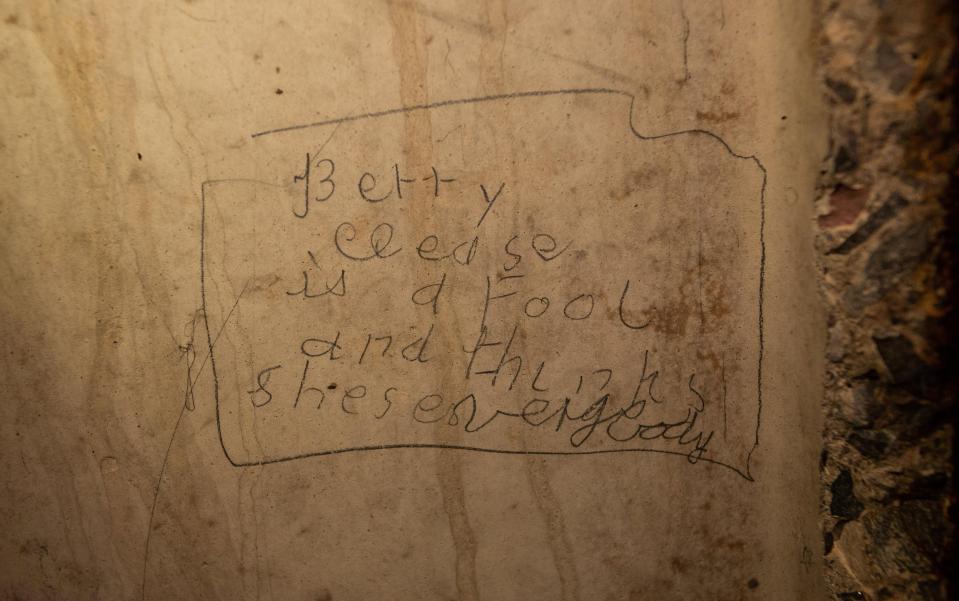 Betty
Clease
is a Fool
and thinks
shes everybody